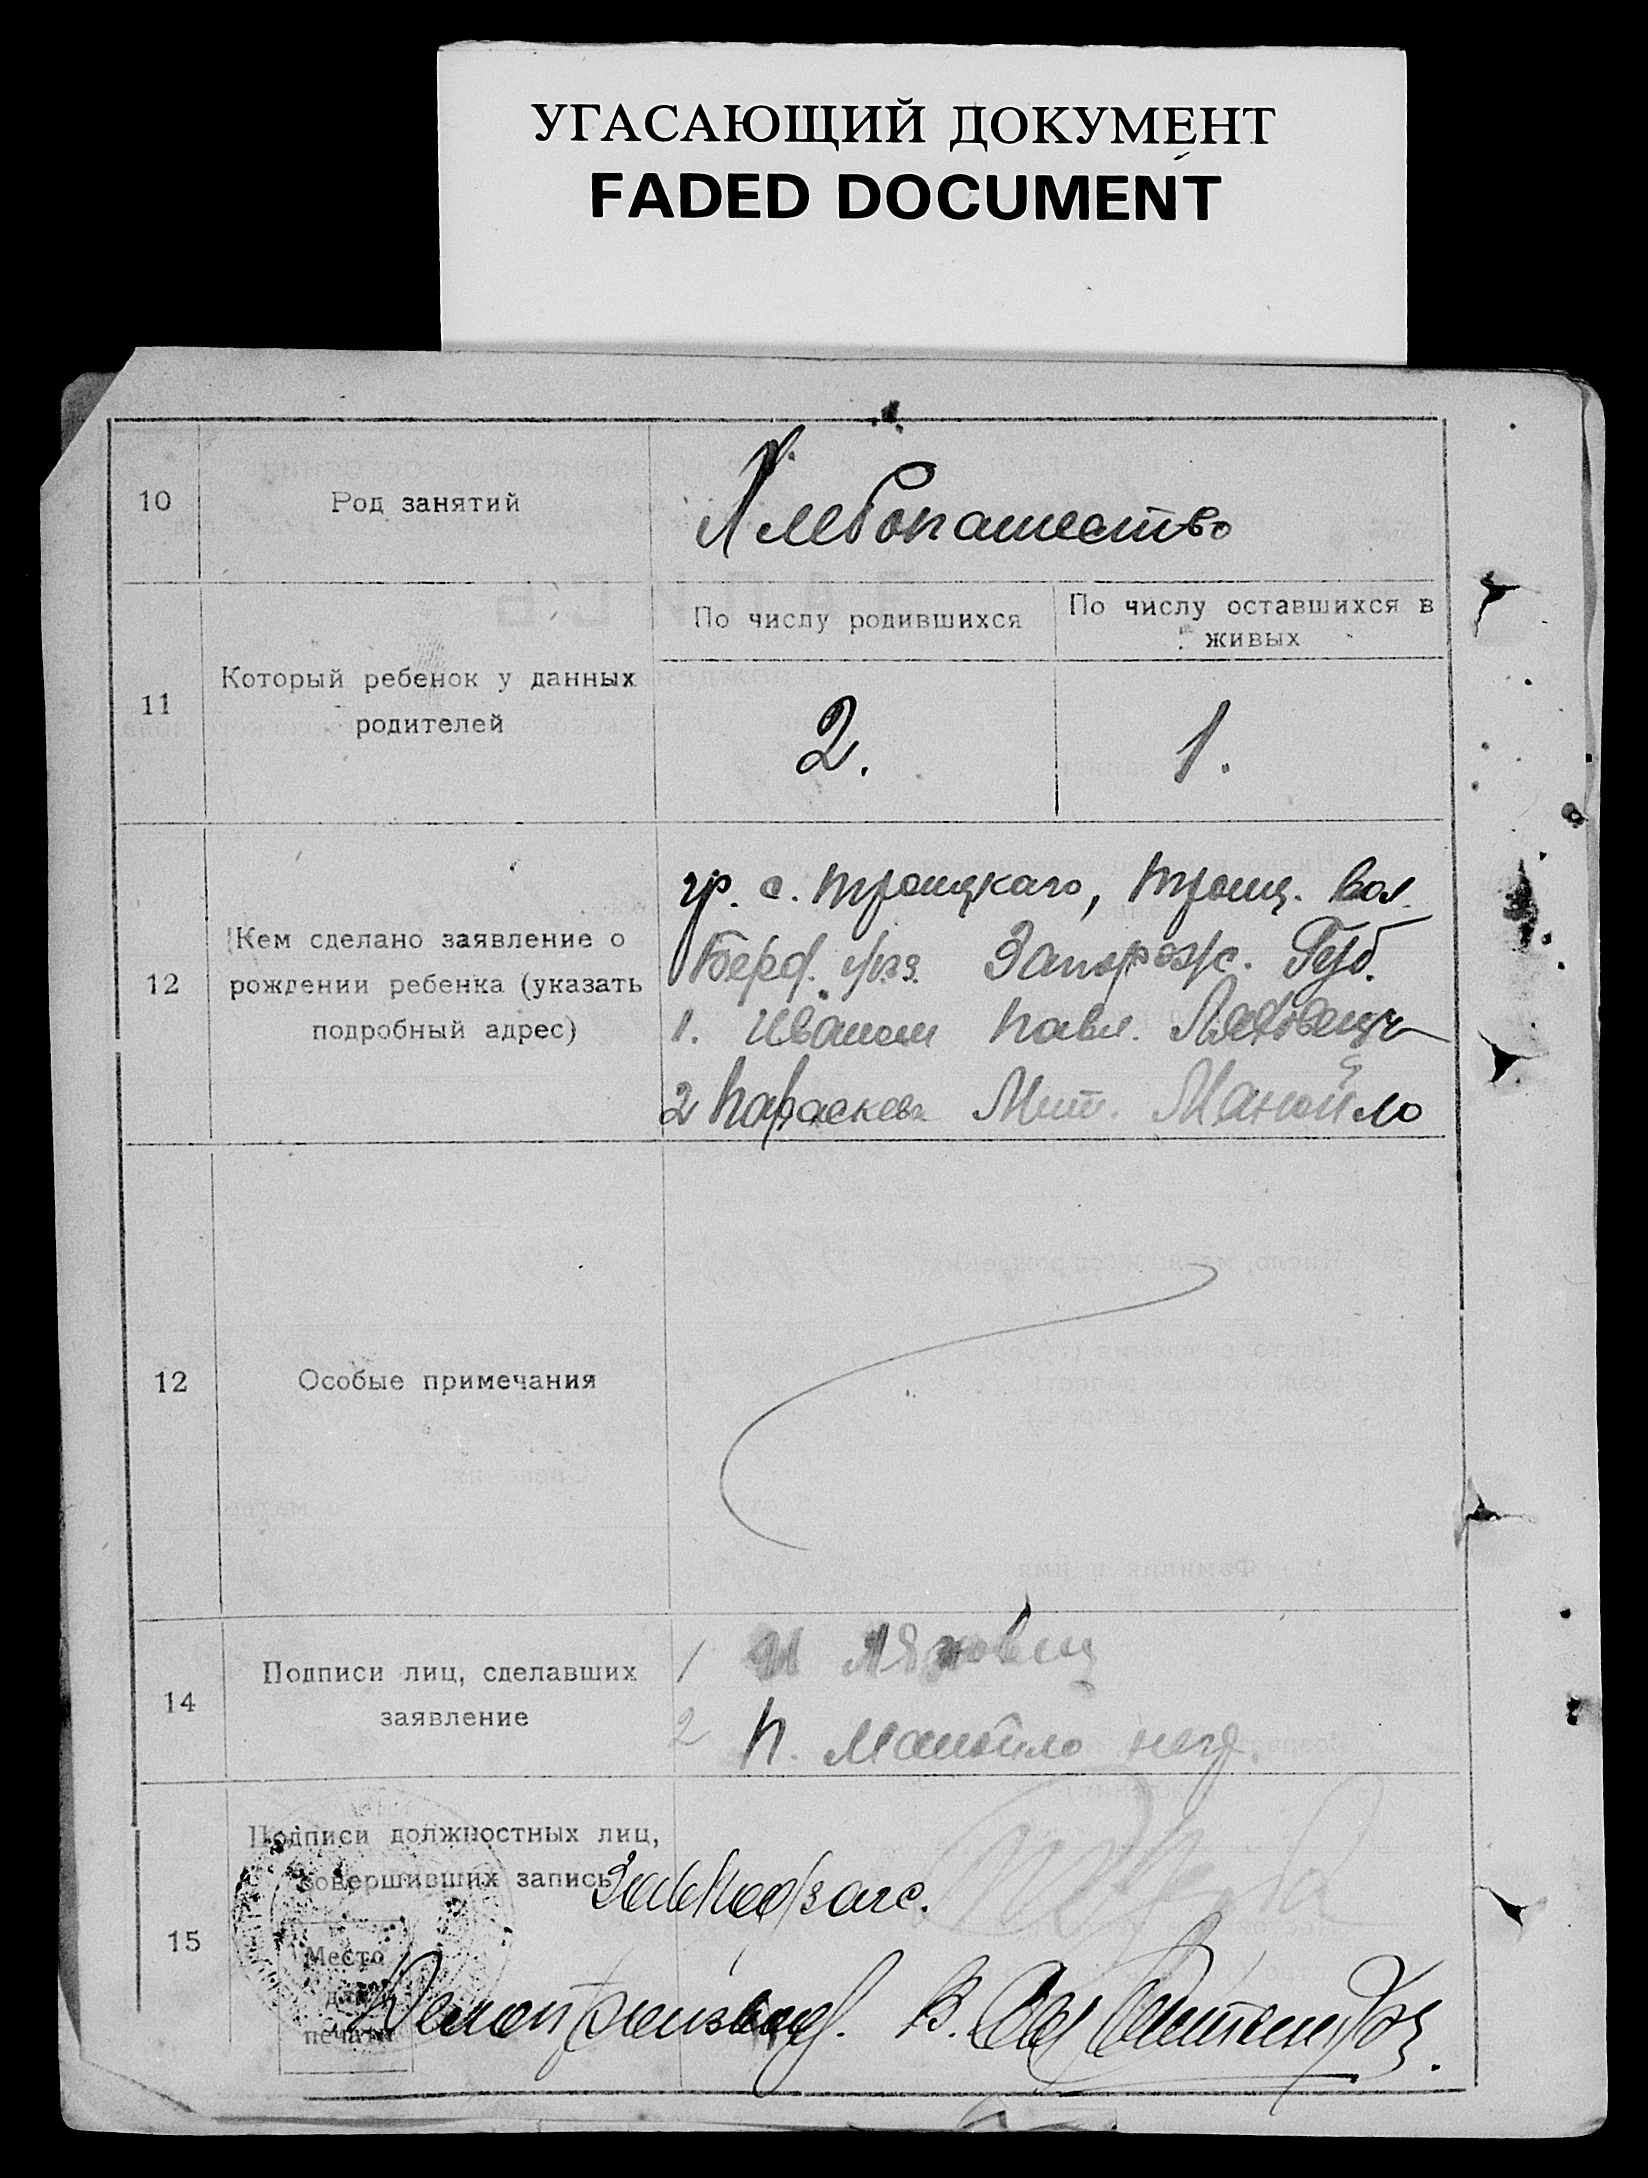 УГАСАЮЩИЙ ДОКУМЕНТ
FADED DOCUMENT
10
Род занятий
Хлебопашество
11
Который ребенок у данных
родителей
По числу родившихся
По числу оставшихся в
живых
2.
1.
12
Кем сделано заявление о
рождении ребенка (указать
подробный адрес)
гр. с. Троицкаго, Троиц. вол.
Берд. уез. Запорож. Губ.
1. Иваном Павл. Ляховец
2 Параскева Мит. Манойло
12
Особые примечания
14
Подписи лиц, сделавших
заявление
1 И Ляховец
2 П. Манойло негр.
15
Подписи должностных лиц,
совершивших запись
Завподзагс.
Место
для
печати
Делопроизвод. В.